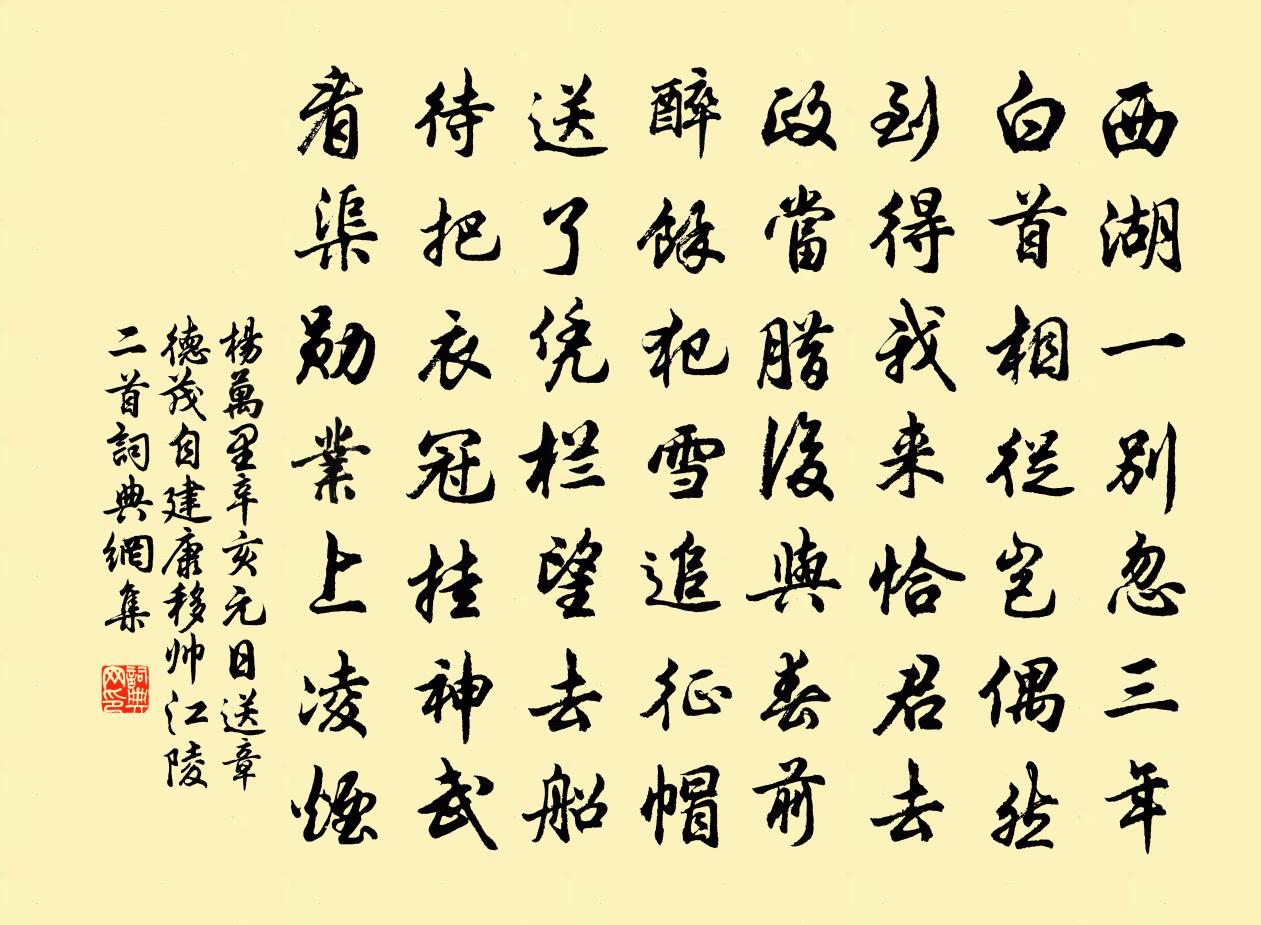 西湖一別忽三年
白首相從豈偶然
到得我来恰君去
政當腊後與春前
醉餘犯雪追征帽
送了凭栏望去船
待把衣冠挂神武
看渠勋業上凌煙
楊萬里辛亥元日送章
德茂自建康移帅江陵
二首詞典網集
詞典网印